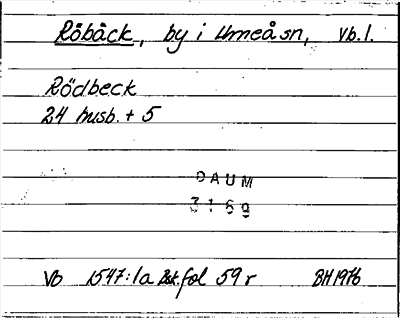 Röbäck, by i Umeå sn, Vb.l.
Rödbeck
24 husb. + 5
DAUM
3169
Vb 1547:1a Bsk. fol 59 r BH 1976